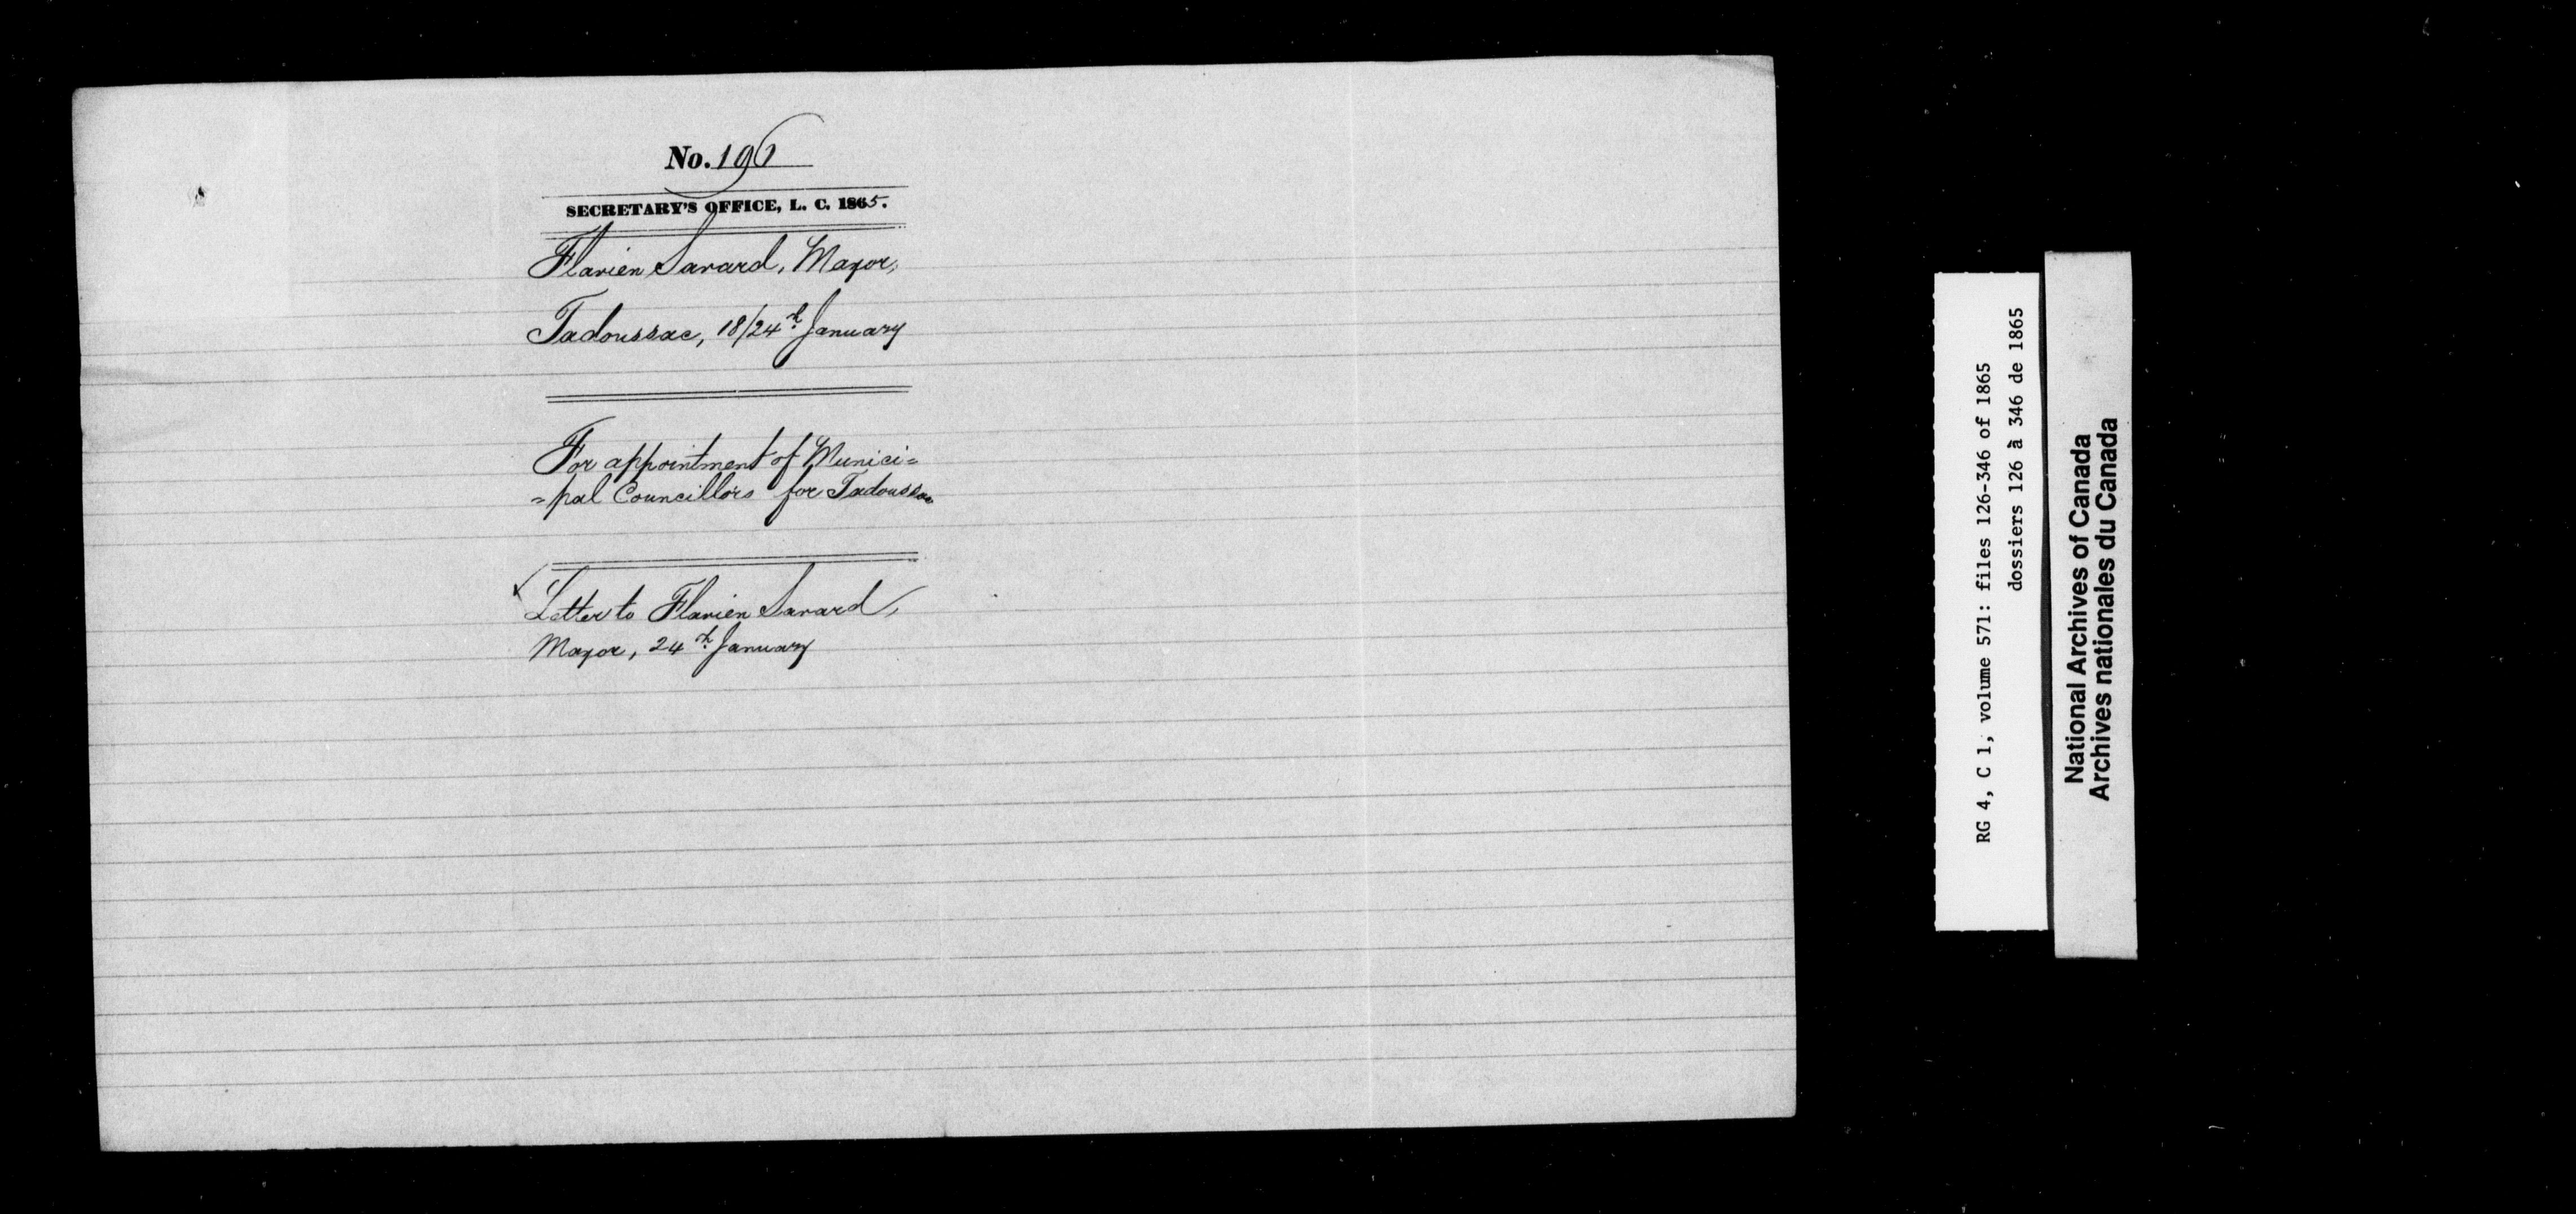 No. 196
SECRETARY'S OFFICE, L. C. 1865.
Flavien Savard, Mayor,
Tadoussac, 18/24th January
For appointment of Munici=
=pal Councillors for Tadoussac
Letter to Flavien Savard,
Mayor, 24th January
RG 4, C 1, volume 571: files 126-346 of 1865
dossiers 126 à 346 de 1865
National Archives of Canada
Archives nationales du Canada